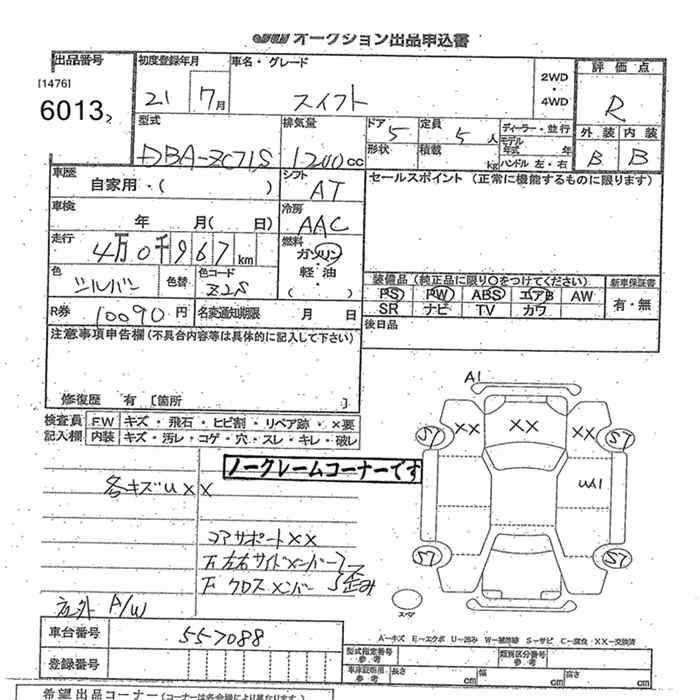 JU オークション出品申込書
出品番号 初度登録年月 車名・グレード 2WD ・ 4WD 評価点
[1476]
6013 21 7月 スイフト R
型式 排気量 ドア 5 定員 5人 ディーラー・並行 外装 内装
DBA-ZC71S 1200cc 形状 積載 kg モデル年式 年 ハンドル 左・右 B B
車歴 シフト セールスポイント(正常に機能するものに限ります)
自家用・( ) AT
車検 冷房
年 月( 日) AAC
走行 燃料
4万0千967km ガソリン・軽油
色 色替 色コード ( ) 装備品(純正品に限り○をつけてください) 新車保証書
シルバー Z2S PS PW ABS エアB AW 有・無
R券 10090円 名変通知期限 月 日 SR ナビ TV カワ
注意事項申告欄(不具合内容等は具体的に記入して下さい) 後日品
修復歴 有 [箇所 ]
A1
検査員 FW キズ・飛石・ヒビ割・リペア跡・×要
記入欄 内装 キズ・汚レ・コゲ・穴・スレ・キレ・破レ
XX XX XX
S7 S7
ノークレームコーナーです
各キズUXX
コアサポートXX
下左右サイドメンバー
下クロスメンバー 歪み
S7 S7
スペア
P/W
A…キズ E…エクボ U…凹み W…補修跡 S…サビ C…腐食 XX…交換済
車台番号 557088 型式指定番号 参考 類別区分番号 参考
登録番号 車庫証明用 参考 長さ cm 幅 cm 高さ cm
希望出品コーナー(コーナーは各会場により異なります。)